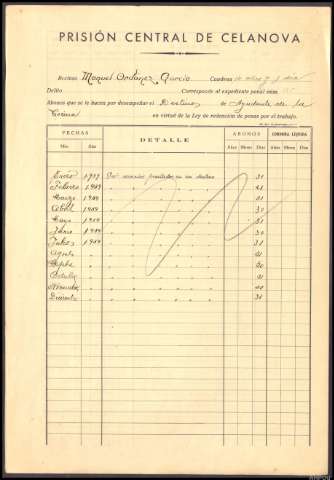 PRISIÓN CENTRAL DE CELANOVA
Recluso Manuel Ordoñez García Condena
Delito Corresponde al expediente penal núm.
Abonos que se le hacen por desempeñar el Destino de Ayudante de
Cocina en virtud de la Ley de redención de penas por el trabajo.
FECHAS DETALLE ABONOS CONDENA LÍQUIDA
Mes Año Años Meses Días Años Meses Días
Enero Por servicios prestados en su destino 31
Febrero
Marzo 31
Abril 30
Mayo 31
Junio 30
Julio 31
Agosto 31
Septbe 30
Octubre 31
Diciembre 31